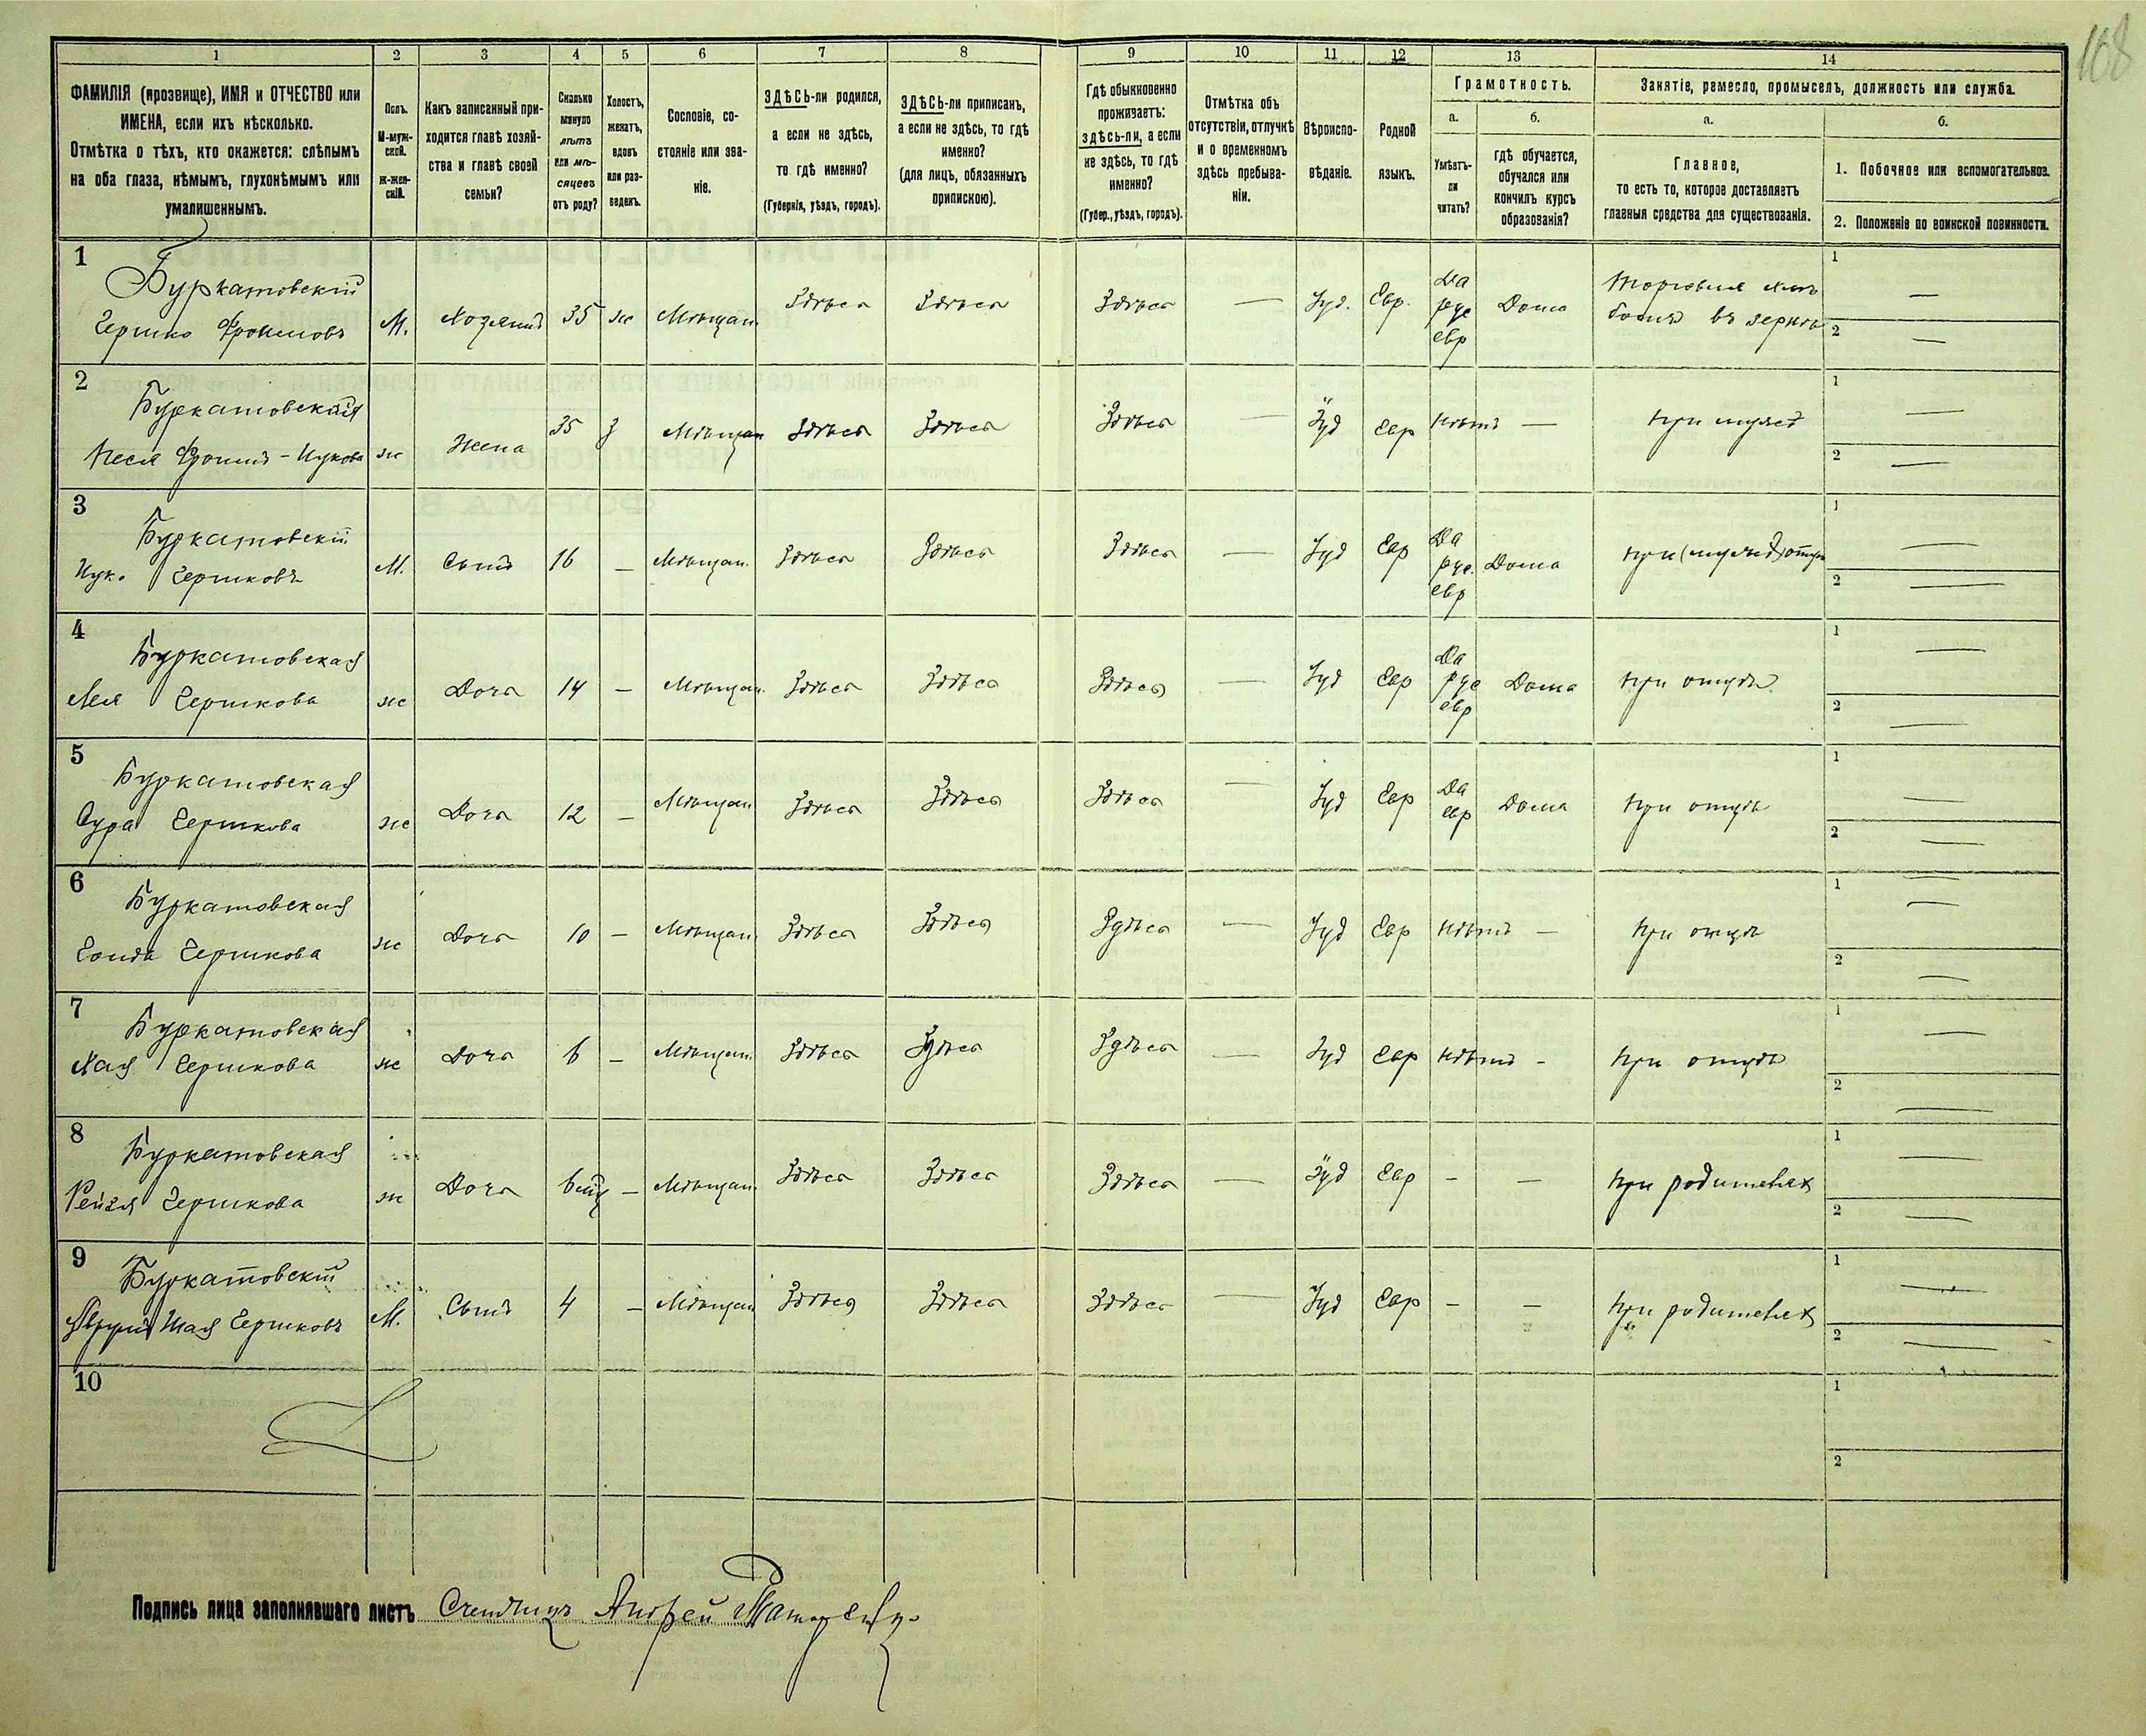 108
1 2 3 4 5 6 7 8 9 10 11 12 13 14
ФАМИЛІЯ (прозвище), ИМЯ и ОТЧЕСТВО или
ИМЕНА, если ихъ нѣсколько.
Отмѣтка о тѣхъ, кто окажется: слѣпымъ
на оба глаза, нѣмымъ, глухонѣмымъ или
умалишеннымъ.
Полъ.
М-муж-
ской.
ж-жен-
скій.
Какъ записанный при-
ходится главѣ хозяй-
ства и главѣ своей
семьи?
Сколько
минуло
лѣтъ
или мѣ-
сяцевъ
отъ роду?
Холостъ,
женатъ,
вдовъ
или раз-
веденъ.
Сословіе, со-
стояніе или зва-
ніе.
ЗДѢСЬ-ли родился,
а если не здѣсь,
то гдѣ именно?
(Губернія, уѣздъ, городъ).
ЗДѢСЬ-ли приписанъ,
а если не здѣсь, то гдѣ
именно?
(для лицъ, обязанныхъ
припискою).
Гдѣ обыкновенно
проживаетъ:
здѣсь-ли, а если
не здѣсь, то гдѣ
именно?
(Губер., уѣздъ, городъ).
Отмѣтка объ
отсутствіи, отлучкѣ
и о временномъ
здѣсь пребыва-
ніи.
Вѣроиспо-
вѣданіе.
Родной
языкъ.
Грамотность.
а.
Умѣетъ-
ли
читать?
б.
гдѣ обучается,
обучался или
кончилъ курсъ
образованія?
Занятіе, ремесло, промыселъ, должность или служба.
а.
Главное,
то есть то, которое доставляетъ
главныя средства для существованія.
б.
1. Побочное или вспомогательное.
2. Положеніе по воинской повинности.
1
Буркатовскій
Гершко Фроимовъ М. Хозяинъ 35 ж Мѣщан. Здѣсь Здѣсь Здѣсь — Іуд. Евр. Да рус евр Дома Торговля хлѣ
бомъ въ зернѣ 1 — 2 —
2
Буркатовская
Песя Фроимъ-Ицкова ж Жена 35 з Мѣщан Здѣсь Здѣсь Здѣсь — Іуд Евр Нѣтъ — при мужѣ 1 — 2 —
3
Буркатовскій
Ицк. Гершковъ М. Сынъ 16 — Мѣщан. Здѣсь Здѣсь Здѣсь — Іуд Евр Да рус. евр Дома при (мужѣ) отцѣ 1 — 2 —
4
Буркатовская
Лея Гершкова ж Дочь 14 — Мѣщан. Здѣсь Здѣсь Здѣсь — Іуд Евр Да рус евр Дома при отцѣ 1 — 2 —
5
Буркатовская
Сура Гершкова ж Дочь 12 — Мѣщан Здѣсь Здѣсь Здѣсь — Іуд Евр Да евр Дома при отцѣ 1 — 2 —
6
Буркатовская
Гершкова ж Дочь 10 — Мѣщан. Здѣсь Здѣсь Здѣсь — Іуд Евр Нѣтъ — при отцѣ 1 — 2 —
7
Буркатовская
Хая Гершкова ж Дочь 6 — Мѣщан. Здѣсь Здѣсь Здѣсь — Іуд Евр Нѣтъ - при отцѣ 1 — 2 —
8
Буркатовская
Рейзя Гершкова ж Дочь — Мѣщан. Здѣсь Здѣсь Здѣсь — Іуд Евр - — при родителях 1 — 2 —
9
Буркатовскій
Шая Гершковъ М. Сынъ 4 — Мѣщан Здѣсь Здѣсь Здѣсь — Іуд Евр - — при родителях 1 — 2 —
10 1 2
Подпись лица заполнявшаго листъ Счетчикъ Андрей